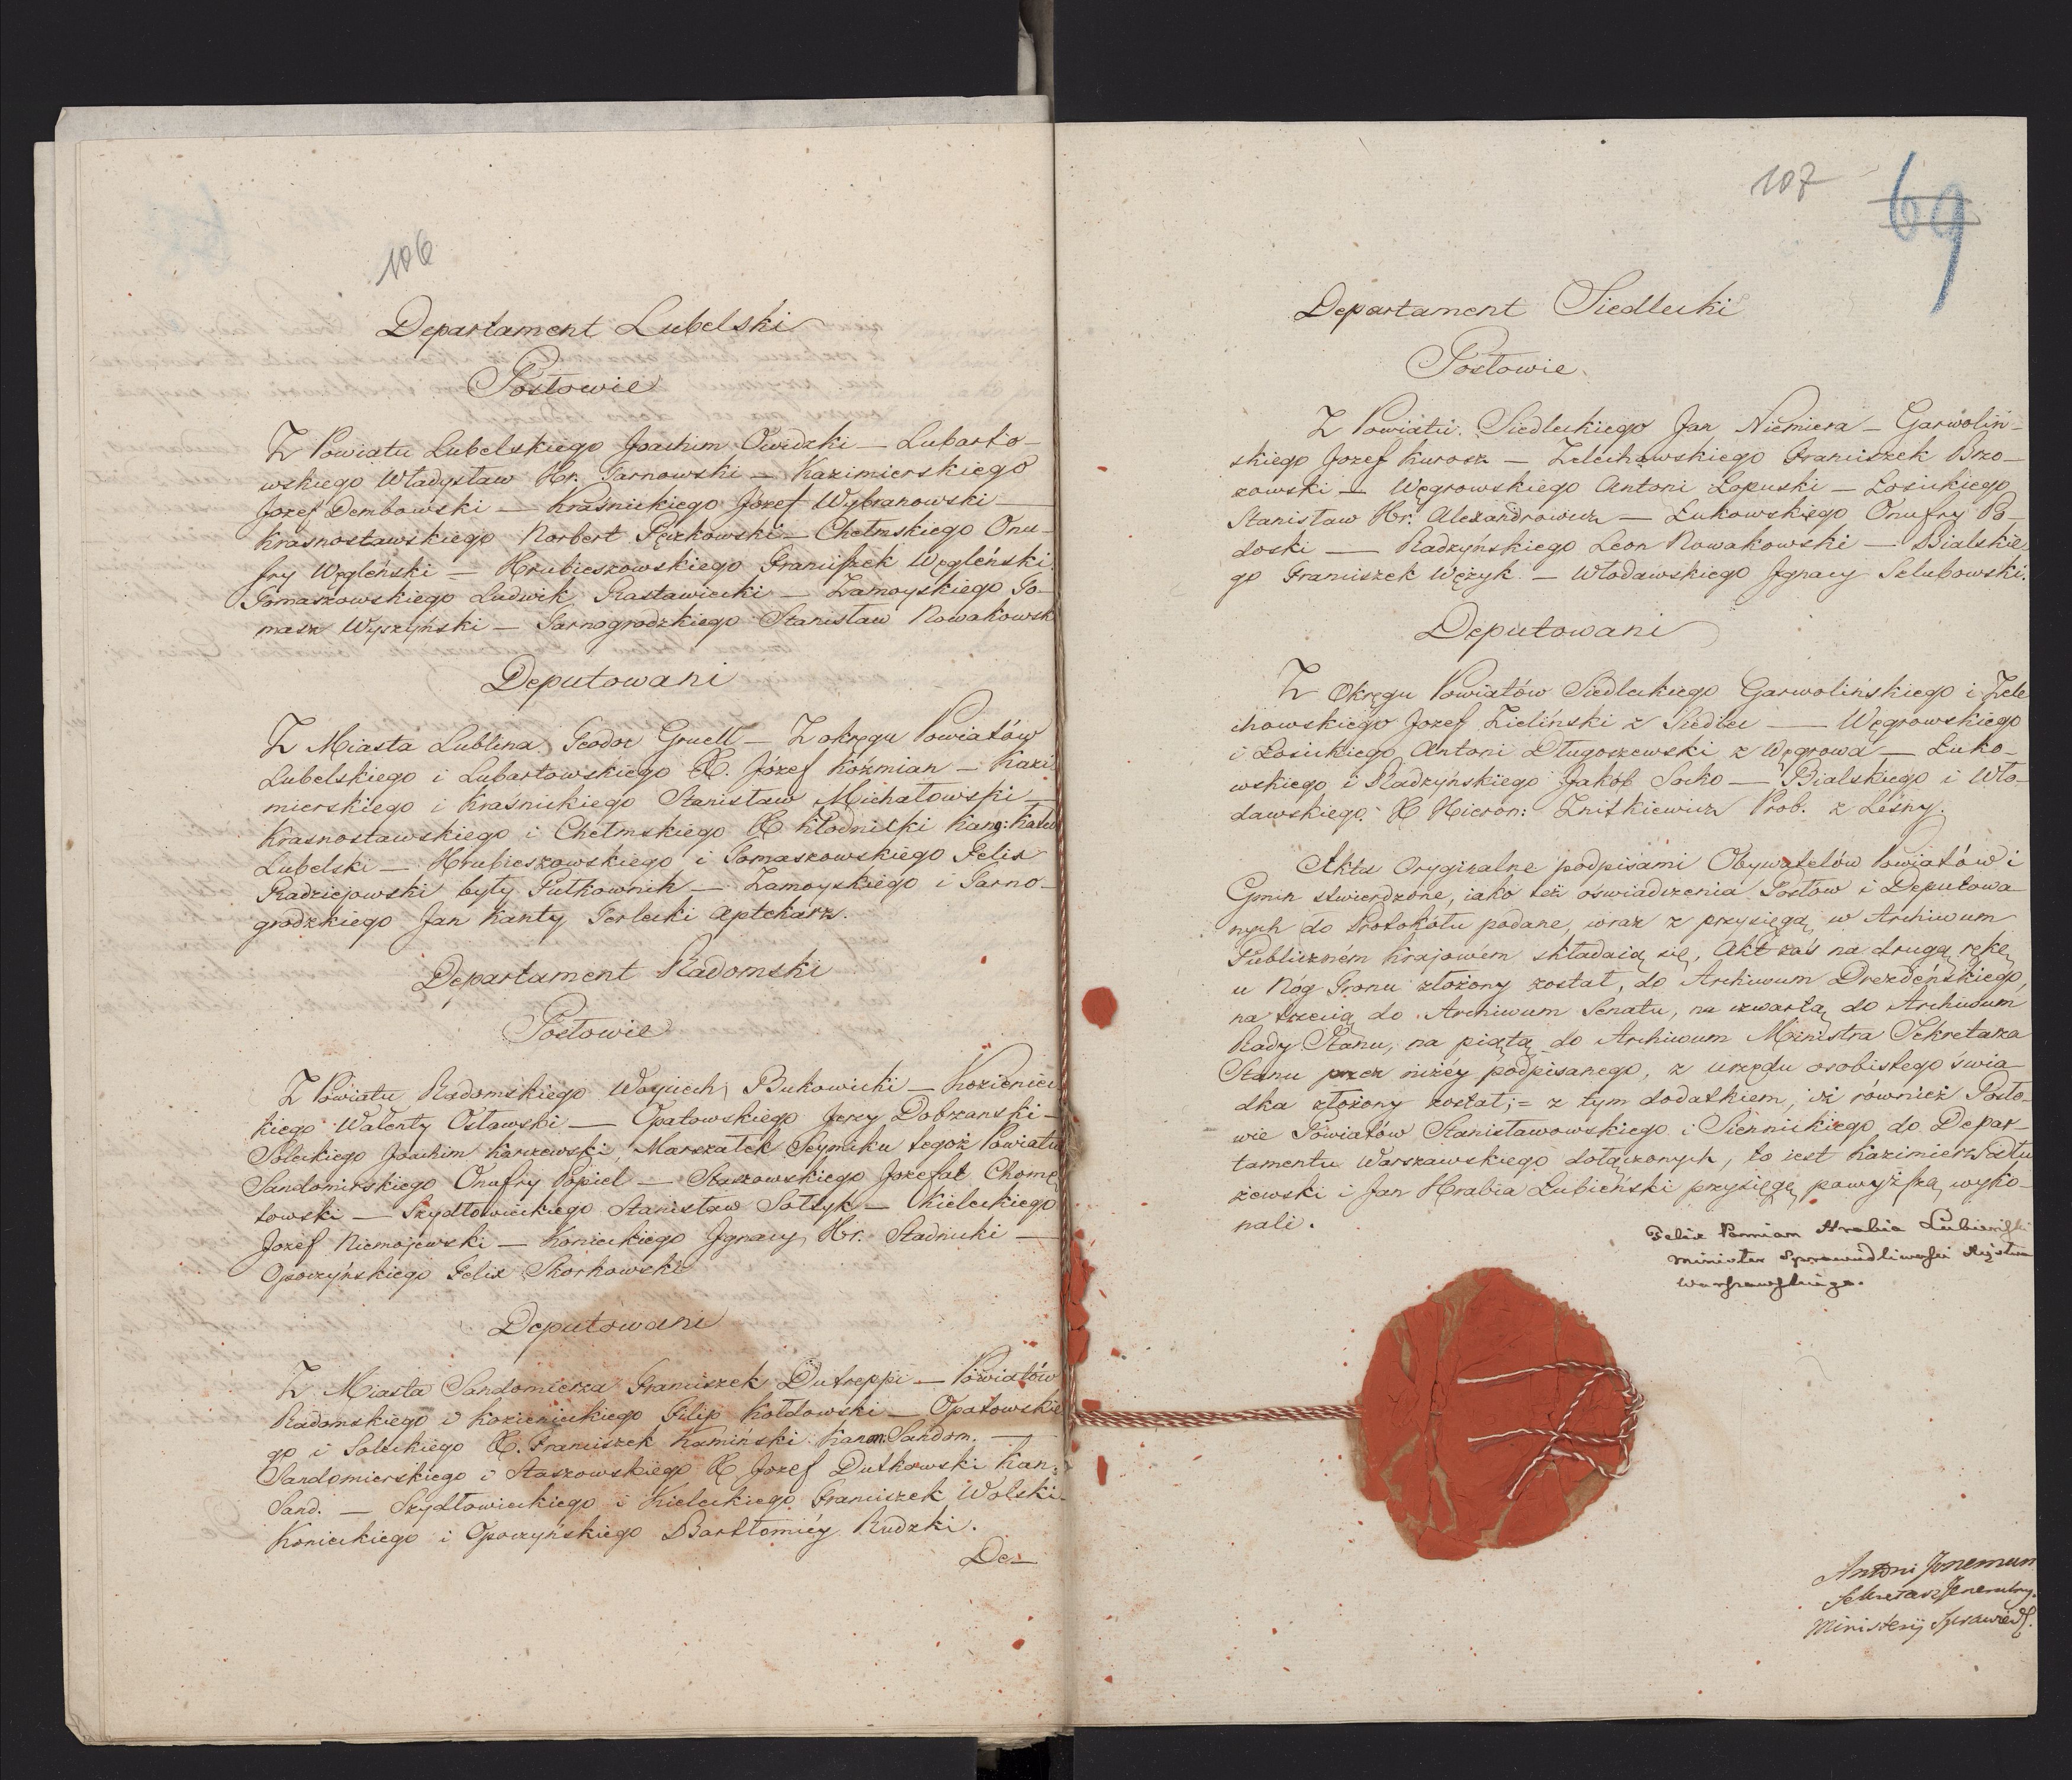 106
Departament Lubelski
Posłowie
Z Powiatu Lubelskiego Joachim Owidzki — Lubarto-
wskiego Władysław Hr. Tarnowski — Kazimierskiego
Jozef Dembowski — Kraśnickiego Józef Wybranowski —
Krasnostawskiego Norbert — Chełmskiego Onu-
fry Węgleński — Hrubieszowskiego Franciszek Węgleński
Tomaszowskiego Ludwik Rastawiecki — Zamoyskiego To-
masz Wyszyński — Tarnogrodzkiego Stanisław Nowakowsk
Deputowani
Z Miasta Lublina Teodor Gruell — Z okręgu Powiatów
Lubelskiego i Lubartowskiego X. Józef Koźmian — Kazi
mierskiego i Kraśnickiego Stanisław Michałowski —
Krasnostawskiego i Chełmskiego X Kłodnicki Kang: Kated
Lubelski — Hrubieszowskiego i Tomaszowskiego Felix
Radziejowski były Pułkownik — Zamoyskiego i Tarno-
grodzkiego Jan Kanty Terlecki Aptekarz.
Departament Radomski
Posłowie
Z Powiatu Radomskiego Woyciech Bukowiecki — Kozienic
kiego Walenty Osławski — Opatowskiego Jerzy Dobrzanski —
Soleckiego Joachim Karczewski, Marszałek Seymiku tegoż Powiatu
Sandomirskiego Onufry Popiel — Staszowskiego Jozefat Chomę
towski — Szydłowieckiego Stanisław Sołtyk — Kieleckiego
Jozef Niemojewski — Konieckiego Jgnacy Hr. Stadnicki —
Opoczyńskiego Felix Skorkowski
Deputowani
Z Miasta Sandomierza Franciszek Dutreppi — Powiatów
Radomskiego i Kozienickiego Filip Kołdowski — Opatowskie
go i Soleckiego X. Franciszek Kamiński Kanon. Sandom. —
Sandomierskiego i Staszowskiego X Jozef Dutkowski Kan:
Sand. — Szydłowieckiego i Kieleckiego Franciszek Wolski
Konieckiego i Opoczyńskiego Bartłomiéy Rudzki.
De—
107
69
Departament Siedlecki
Posłowie
Z Powiatu Siedleckiego Jan Niemiera — Garwoliń-
skiego Jozef Kurosz — Zelechowskiego Franciszek Brzo-
zowski — Węgrowskiego Antoni Łopuski — Łosickiego
Stanisław Hr. Alexandrowicz — Łukowskiego Onufry Po-
doski — Radzyńskiego Leon Nowakowski — Bialskie
go Franciszek Wężyk — Włodawskiego Jgnacy Selubowski.
Deputowani
Z Okręgu Powiatów Siedleckiego Garwolińskiego i Zele
chowskiego Jozef Zieliński z Siedlec — Węgrowskiego
i Łosickiego Antoni Długoszewski z Węgrowa — Łuko-
wskiego i Radzyńskiego Jakób Socko — Bialskiego i Wło-
dawskiego X Hieron: Znitkiewicz Prob. z Leśny.
Akta Oryginalne podpisami Obywatelów Powiatów i
Gmin stwierdzone, iako też oświadczenia Posłów i Deputowa
nych do Protokółu podane, wraz z przysięgą w Archiwum
Publiczném Krajowém składaią się, Akt zaś na drugą rękę
u Nóg Tronu złożony został, do Archiwum Drezdeńskiego,
na trzecią do Archiwum Senatu, na czwartą do Archiwum
Rady Stanu, na piątą do Archiwum Ministra Sekretarza
Stanu przez niżéy podpisanego, z urzędu osobistego świa
dka złożony został; = z tym dodatkiem, iż również Posło-
wie Powiatów Stanisławowskiego i Siennickiego do Depar-
tamentu Warszawskiego dołączonych, to iest Kazimierz
żewski i Jan Hrabia Lubieński przysięgę powyższą wyko-
nali.
Felix Pomian Hrabia Lubieński
Minister Sprawiedliwości Xięstwa
Warszawskiego.
Antoni
Sekretarz Jeneralny
Ministerij Sprawiedl.